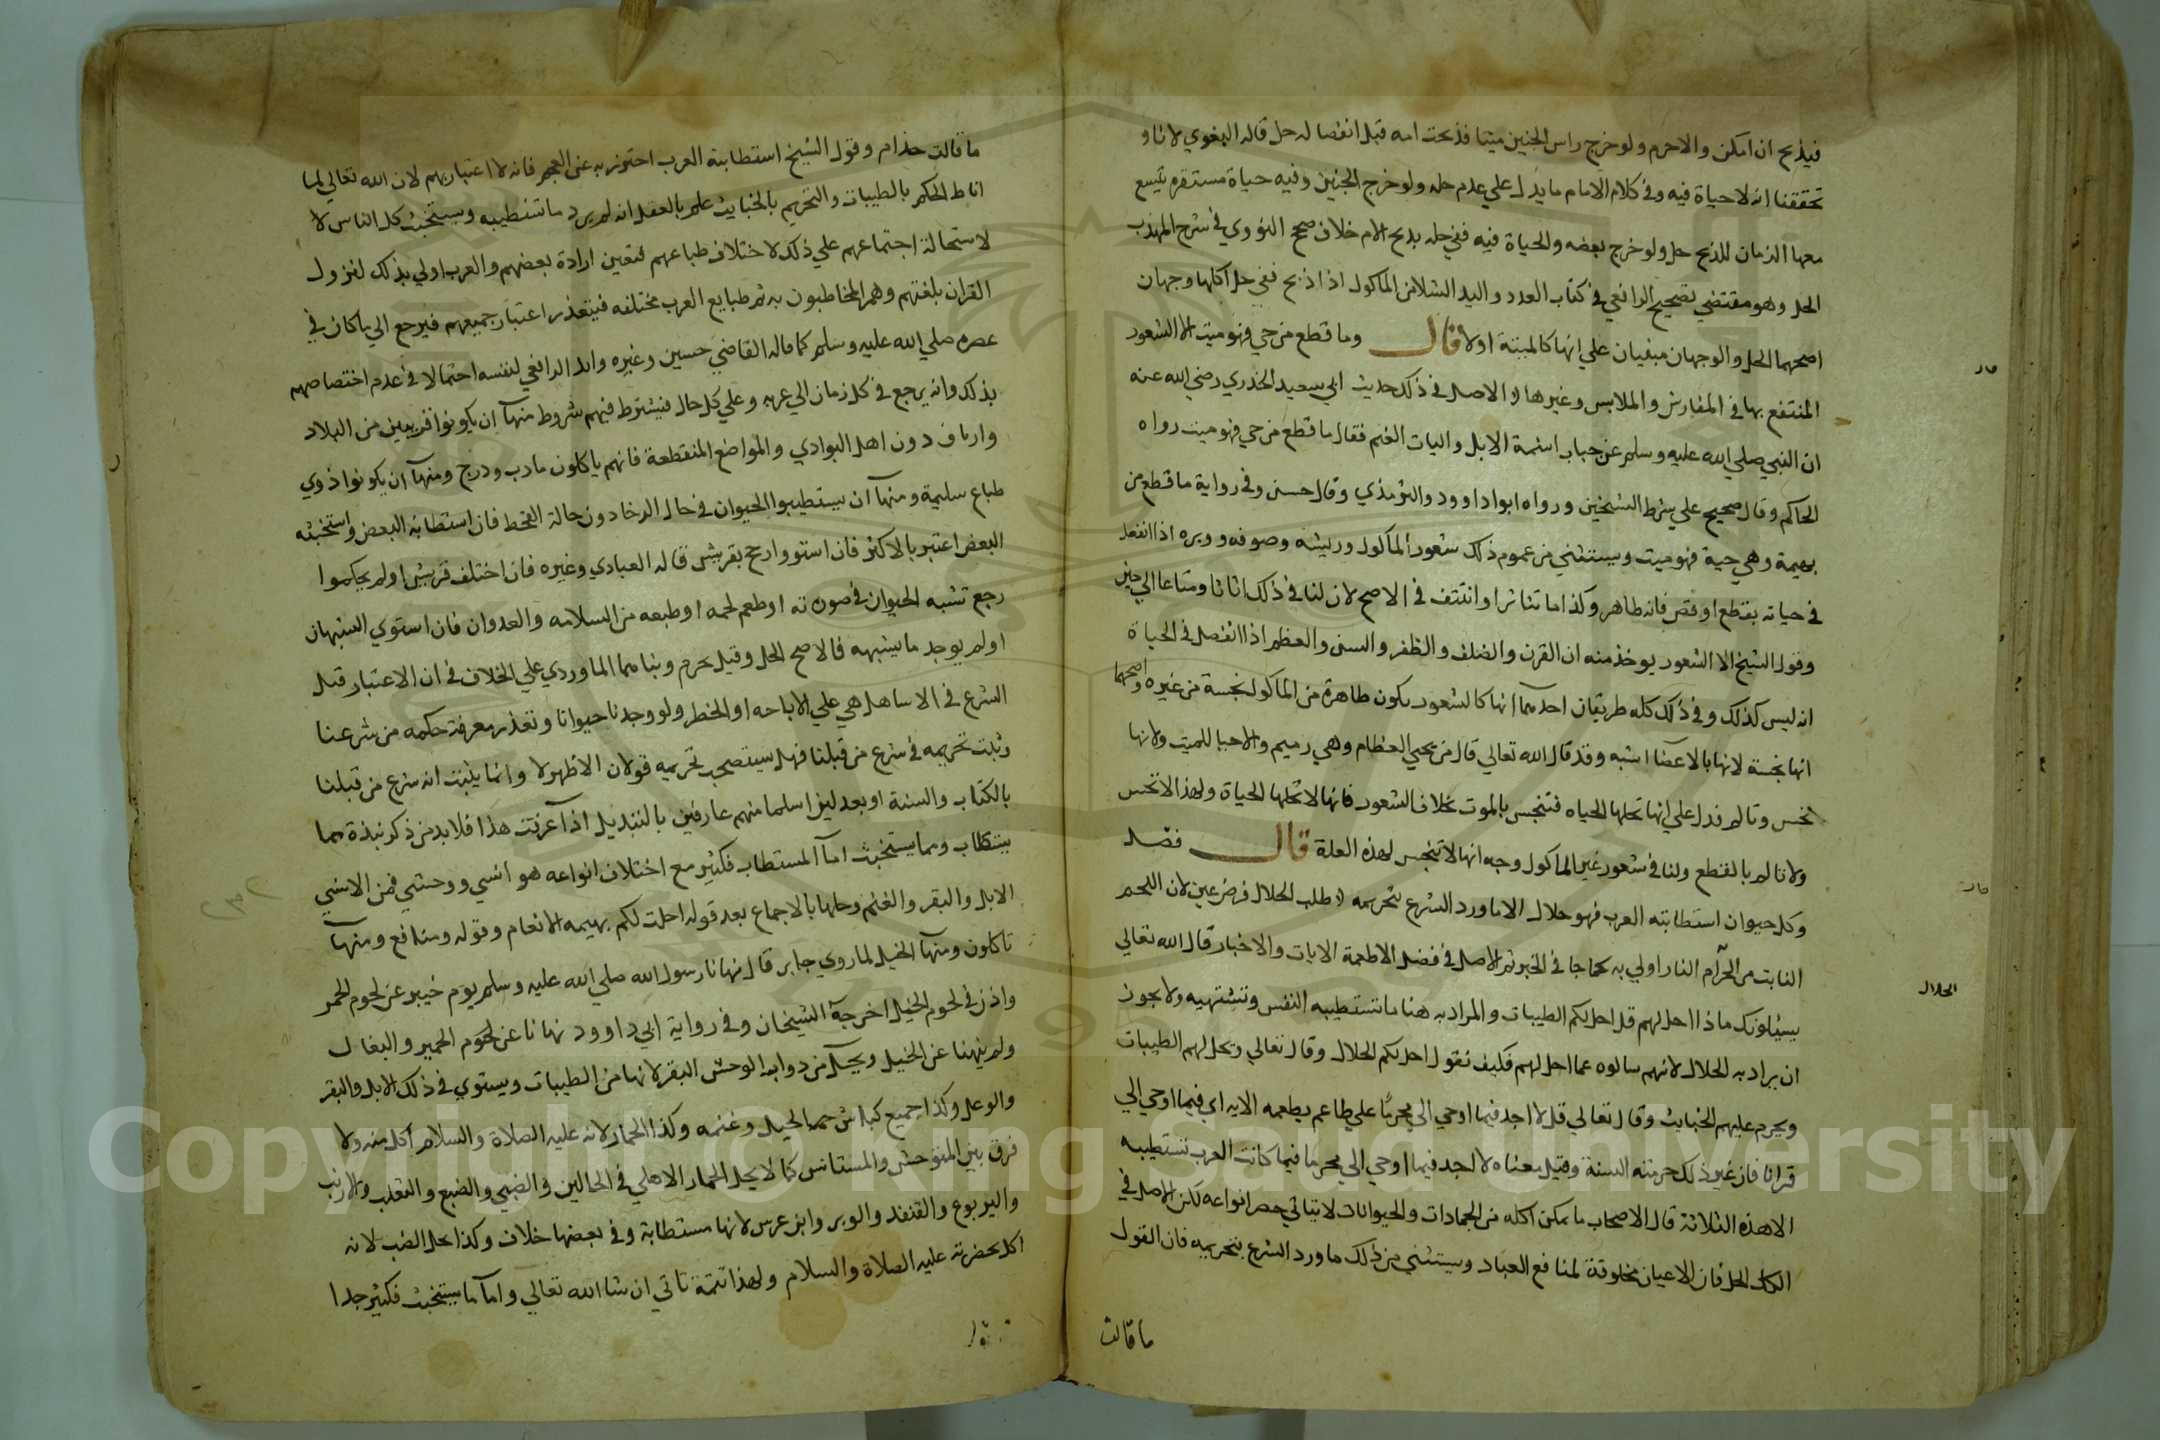 فيذبح ان امكن والاحرم ولو خرج راس الجنين ميتا فذبحت امه قبل انفصاله حل قاله البغوي لانا و
تحققنا انه لا حياة فيه وفي كلام الامام ما يدل علي عدم حله ولو خرج الجنين وفيه حياة مستقره يتسع
معها الزمان للذبح حل ولو خرج بعضه والحياة فيه ففي حله بذبح الام خلاف صحح النووي في شرح المهذب
الحل وهو مقتضي تصحيح الرافعي في كتاب العدد واليد الشلا من الماكول اذا ذبح ففي حل اكلها وجهان
اصحهما الحل والوجهان مبنيان علي انها كالميتة اولا قال وما قطع من حي فهو ميت الا الشعور
المنتفع بها في المفارش والملابس وغيرها الاصل في ذلك حديث ابي سعيد الخدري رضي الله عنه
ان النبي صلي الله عليه وسلم عن جباب اسنمة الابل واليات الغنم فقال ما قطع من حي فهو ميت رواه
الحاكم وقال صحيح علي شرط الشيخين ورواه ابوا داوود والترمذي وقال حسن وفي رواية ما قطع من
بهيمة وهي حية فهو ميت ويستثني من عموم ذلك شعور الماكول وريشه وصوفه ووبره اذا انفصل
في حياته بقطع او قص فانه طاهر وكذا ما تناثر او انتتف في الاصح لان لنا في ذلك اثاثا ومتاعا الي حين
وقول الشيخ الا الشعور يوخذ منه ان القرن والظلف والظفر والسن والعظم اذا انفصل في الحياة
انه ليس كذلك وفي ذلك كله طريقان احدهما انها كالشعور تكون طاهرة من الماكول نجسة من غيره واصحهما
انها نجسة لانها بالاعضا اشبه وقد قال الله تعالي قال من يحيي العظام وهي رميم والاحيا للميت ولانها
تحس وتالم فدل علي انها تحلها الحياه فتنجس بالموت بخلاف الشعور فانها لا تحلها الحياة ولهذا لا تحس
ولا تالم بالقطع ولنا في شعور غير الماكول وجه انها لا تنجس لهذه العلة قال فصل
وكل حيوان استطابته العرب فهو حلال الا ما ورد الشرع بتحريمه طلب الحلال فرض عين لان اللحم
النابت من الحرام النار اولي به كما جا في الخبر ثم الاصل في فصل الاطعمة الايات والاخبار قال الله تعالي
يسئلونك ماذا احل لهم قل احل لكم الطيبات والمراد به هنا ما تستطيبه النفس وتشتهيه ولا يجوز
الحلال
ان يراد به الحلال لانهم سالوه عما احل لهم فكيف نقول احل لكم الحلال وقال تعالي ويحل لهم الطيبات
ويحرم عليهم الخبايث وقال تعالي قل لا اجد فيما اوحي الي محرما علي طاعم يطعمه الايه اي فيما اوحي الي
قرانا فان غير ذلك حرمته السنة وقيل معناه لا اجد فيما اوحي الي محرما فيما كانت العرب تستطيبه
الا هذه الثلاثة قال الاصحاب ما يمكن اكله من الجمادات والحيوانات لا يتاتي حصر انواعه لكن الاصل في
الكل الحل فان الاعيان مخلوقة لمنافع العباد ويستثني من ذلك ما ورد الشرع بتحريمه فان القول
ما قالت
ما قالت حذام وقول الشيخ استطابته العرب احترز به عن العجم فانه لا اعتبار بهم لان الله تعالي لما
اناط الحكم بالطيبات والتحريم بالخبايث علم بالعقل انه لم يرد ما تستطيبه وتستخبثه كل الناس لا
لاستحالة اجتماعهم علي ذلك لاختلاف طباعهم فتعين ارادة بعضهم والعرب اولي بذلك لنزول
القران بلغتهم وهم المخاطبون به ثم طبايع العرب مختلفه فيتعذر اعتبار جميعهم فيرجع الي ما كان في
عصره صلي الله عليه وسلم كما قاله القاضي حسين وغيره وابدا الرافعي لنفسه احتمالا في عدم اختصاصهم
بذلك وانه يرجع في كل زمان الي عربه وعلي كل حال فيشترط فيهم شروط منها ان يكونوا قريبين من البلاد
وارياف دون اهل البوادي والمواضع المنقطعة فانهم ياكلون ما دب ودرج ومنها ان يكونوا ذوي
طباع سليمة ومنها ان يستطيبوا الحيوان في حال الرخا دون حالة القحط فان استطابه البعض واستخبثه
البعض اعتبر بالاكثر فان استووا رجح بقريش قاله العبادي وغيره فان اختلف قريش او لم يحكموا
رجع تشبه الحيوان في صورته او طعم لحمه او طبعه من السلامه والعدوان فان استوي الشبهان
او لم يوجد ما يشبهه فالاصح الحل وقيل حرم وبناهما الماوردي علي الخلاف في ان الاعتبار قبل
الشرع في الاشيا هل هي علي الاباحه او الخطر ولو وجدنا حيوانا وتعذر معرفة حكمه من شرعنا
وثبت تحريمه في شرع من قبلنا فهل يستصحب تحريمه قولان الاظهر لا وانما يثبت انه شرع من قبلنا
بالكتاب والسنة او بعدلين اسلما منهم عارفين بالتبديل اذا عرفت هذا فلا بد من ذكر نبذة مما
يستطاب ومما يستخبث اما المستطاب فكثير مع اختلاف انواعه هو انسي ووحشي فمن الانسي
الابل والبقر والغنم وحلها بالاجماع بعد قوله احلت لكم بهيمه الانعام وقوله ومنافع ومنها
تاكلون ومنها الخيل لما روي جابر قال نهانا رسول الله صلي الله عليه وسلم يوم خيبر عن لحوم الحمر
واذن في لحوم الخيل اخرجه الشيخان وفي رواية ابي داوود نهانا عن لحوم الحمير والبغال
ولم ينهنا عن الخيل ويحل من دواب الوحش البقر لانها من الطيبات ويستوي في ذلك الابل والبقر
والوعل وكذا جميع كباش الجبل وغنمه وكذا الحمار لانه عليه الصلاة والسلام اكل منه ولا
فرق بين المتوحش والمستانس كما لا يحل الحمار الاهلي في الحالين والضبي والضبع والثعلب والارنب
واليربوع والقنفد والوبر وابن عرس لانها مستطابة وفي بعضها خلاف وكذا حل الضب لانه
اكل بحضرته عليه الصلاة والسلام ولهذا تتمة تاتي ان شا الله تعالي واما ما يستخبث فكثير جدا
Copyright © King Saud University